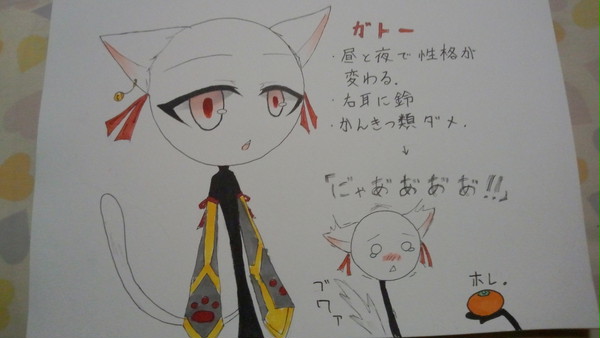 ガトー
・昼と夜で性格が
変わる.
・右耳に鈴
・かんきつ類ダメ.
↓
「にゃあ゛あ゛あ゛あ゛!!」
ブワァ
ホレ.